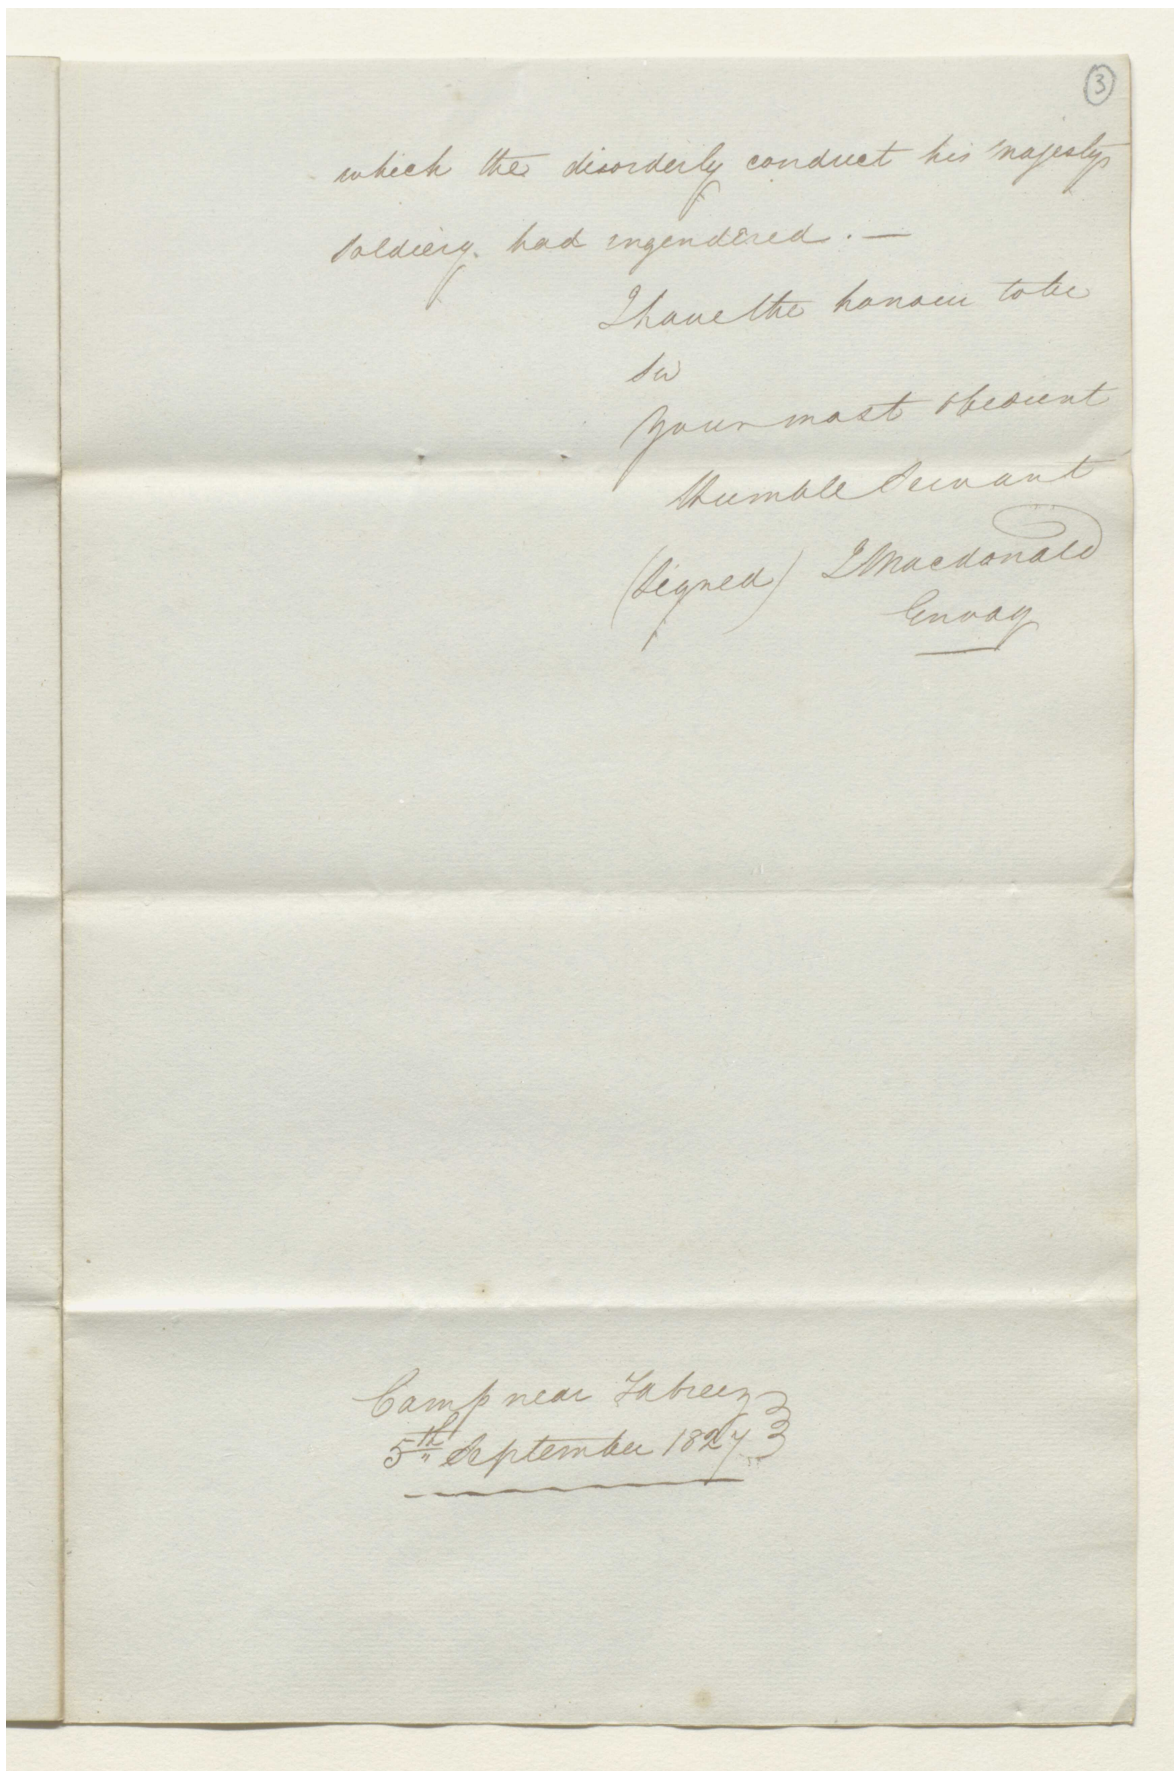 3
which the disorderly conduct his Majestys
soldiery. had engendered. —
I have the honour to be
Sir
Your most obedient
Humble Servant
(Signed) J Macdonald
Envoy
Camp near Tabreez
5th September 1827